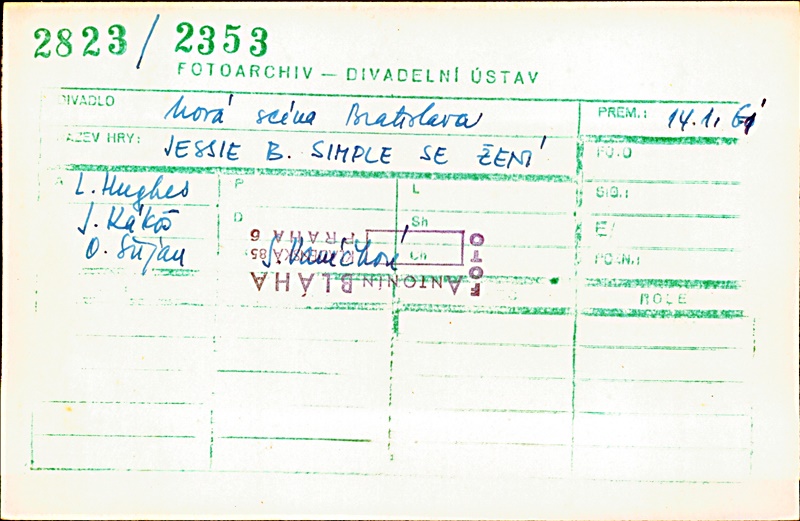 2823 / 2353
FOTOARCHIV — DIVADELNÍ ÚSTAV
DIVADLO Nová scéna Bratislava PREM.: 14.1.61
NÁZEV HRY: JESSIE B. SIMPLE SE ŽENÍ FOTO
A L. Hughes P L SIG.:
J. Kákoš D Sh E/
O. Šujan Ch POZN.:
FOTO
ANTONÍN BLÁHA
PRAHA 6
ROLE